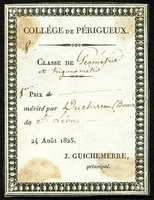 COLLÉGE DE PÉRIGUEUX.
CLASSE DE Géométrie
et trigonométrie
PRIX
mérité par
de St Léon
24 Août 1823.
J. GUICHEMERRE,
principal.